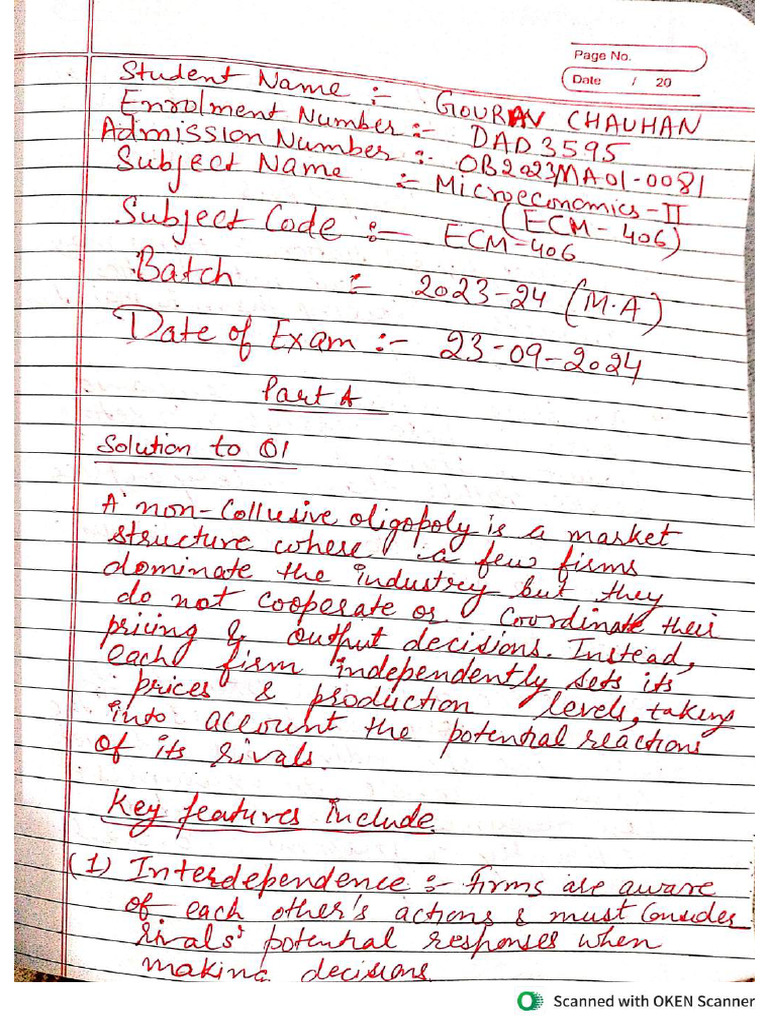 Page No.
Date / 20
Student Name :- GOURAV CHAUHAN
Enrolment Number :- DAD3595
Admission Number :- OB2023MA01-0081
Subject Name :- Microeconomics-II
(ECM-406)
Subject Code :- ECM-406
Batch :- 2023-24 (M.A)
Date of Exam :- 23-09-2024
Part A
Solution to Q1
A non-Collusive oligopoly is a market
structure where a few firms
dominate the industry but they
do not cooperate or coordinate their
pricing & output decisions. Instead,
each firm independently sets its
prices & production levels, taking
into account the potential reactions
of its rivals.
Key features include
(1) Interdependence :- Firms are aware
of each other's actions & must Consider
rivals' potential responses when
making decisions
Scanned with OKEN Scanner